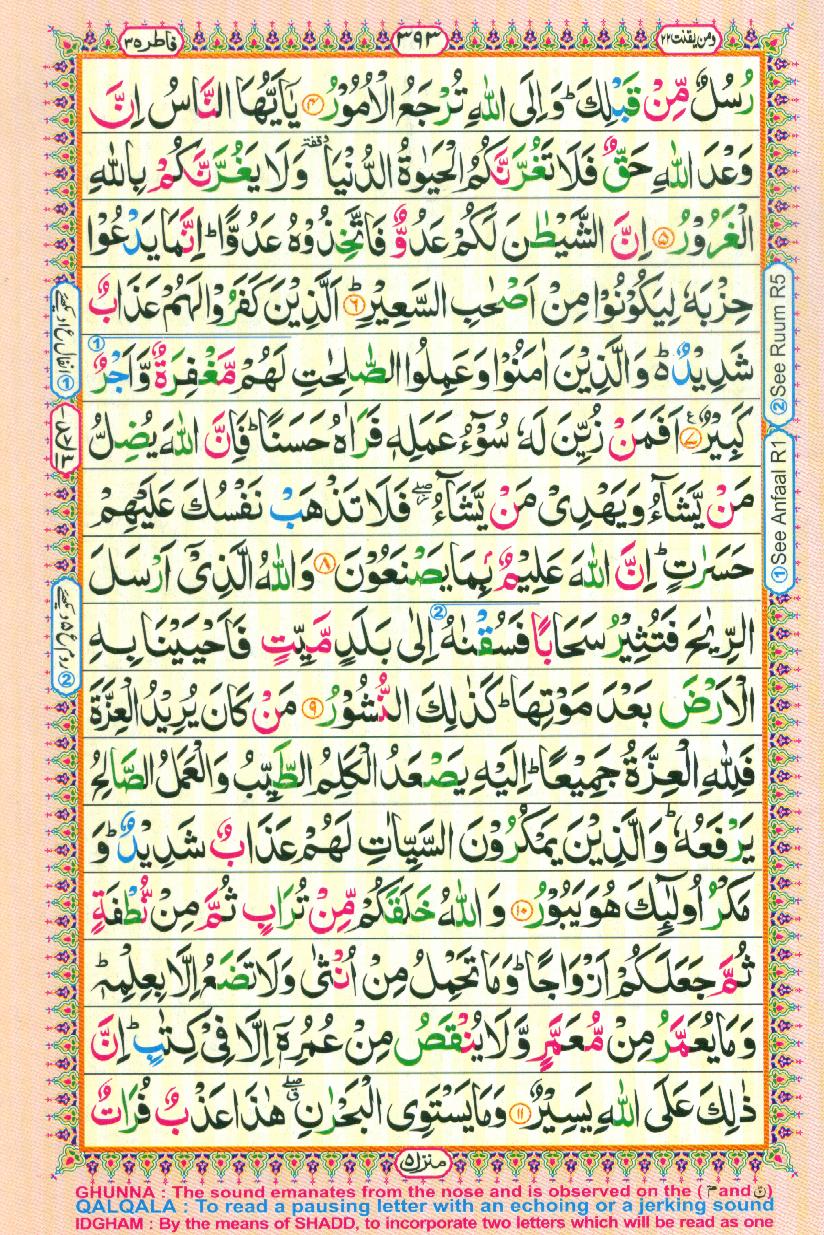 فاطر ۳۵
۳۹۳
ومن یقنت ۲۲
رُسُلٌ مِّنْ قَبْلِكَ ؕ وَاِلَى اللّٰهِ تُرْجَعُ الْاُمُوْرُ ۴ یٰۤاَیُّهَا النَّاسُ اِنَّ
وَعْدَ اللّٰهِ حَقٌّ فَلَا تَغُرَّنَّكُمُ الْحَیٰوةُ الدُّنْیَا ۥ وقفة وَلَا یَغُرَّنَّكُمْ بِاللّٰهِ
الْغَرُوْرُ ۵ اِنَّ الشَّیْطٰنَ لَكُمْ عَدُوٌّ فَاتَّخِذُوْهُ عَدُوًّا ؕ اِنَّمَا یَدْعُوْا
حِزْبَهٗ لِیَكُوْنُوْا مِنْ اَصْحٰبِ السَّعِیْرِ ؕ ۶ اَلَّذِیْنَ كَفَرُوْا لَهُمْ عَذَابٌ
شَدِیْدٌ ؕ۬ وَالَّذِیْنَ اٰمَنُوْا وَعَمِلُوا الصّٰلِحٰتِ لَهُمْ مَّغْفِرَةٌ وَّاَجْرٌ ①
كَبِیْرٌ ۷ ع اَفَمَنْ زُیِّنَ لَهٗ سُوْٓءُ عَمَلِهٖ فَرَاٰهُ حَسَنًا ؕ فَاِنَّ اللّٰهَ یُضِلُّ
مَنْ یَّشَآءُ وَیَهْدِیْ مَنْ یَّشَآءُ ۖؗ فَلَا تَذْهَبْ نَفْسُكَ عَلَیْهِمْ
حَسَرٰتٍ ؕ اِنَّ اللّٰهَ عَلِیْمٌۢ بِمَا یَصْنَعُوْنَ ۸ وَاللّٰهُ الَّذِیْۤ اَرْسَلَ
الرِّیٰحَ فَتُثِیْرُ سَحَابًا فَسُقْنٰهُ ② اِلٰى بَلَدٍ مَّیِّتٍ فَاَحْیَیْنَا بِهِ
الْاَرْضَ بَعْدَ مَوْتِهَا ؕ كَذٰلِكَ النُّشُوْرُ ۹ مَنْ كَانَ یُرِیْدُ الْعِزَّةَ
فَلِلّٰهِ الْعِزَّةُ جَمِیْعًا ؕ اِلَیْهِ یَصْعَدُ الْكَلِمُ الطَّیِّبُ وَالْعَمَلُ الصَّالِحُ
یَرْفَعُهٗ ؕ وَالَّذِیْنَ یَمْكُرُوْنَ السَّیِّاٰتِ لَهُمْ عَذَابٌ شَدِیْدٌ ؕ وَ
مَكْرُ اُولٰٓىِٕكَ هُوَ یَبُوْرُ ۱۰ وَاللّٰهُ خَلَقَكُمْ مِّنْ تُرَابٍ ثُمَّ مِنْ نُّطْفَةٍ
ثُمَّ جَعَلَكُمْ اَزْوَاجًا ؕ وَمَا تَحْمِلُ مِنْ اُنْثٰى وَلَا تَضَعُ اِلَّا بِعِلْمِهٖ ؕ
وَمَا یُعَمَّرُ مِنْ مُّعَمَّرٍ وَّلَا یُنْقَصُ مِنْ عُمُرِهٖۤ اِلَّا فِیْ كِتٰبٍ ؕ اِنَّ
ذٰلِكَ عَلَى اللّٰهِ یَسِیْرٌ ۱۱ وَمَا یَسْتَوِی الْبَحْرٰنِ ۖۗ هٰذَا عَذْبٌ فُرَاتٌ
منزل ۵
① انفال ر ع ۱ دیکھیے
② روم ع ۵ دیکھیے
① See Anfaal R1
② See Ruum R5
GHUNNA : The sound emanates from the nose and is observed on the ( مّ and نّ )
QALQALA : To read a pausing letter with an echoing or a jerking sound
IDGHAM : By the means of SHADD, to incorporate two letters which will be read as one